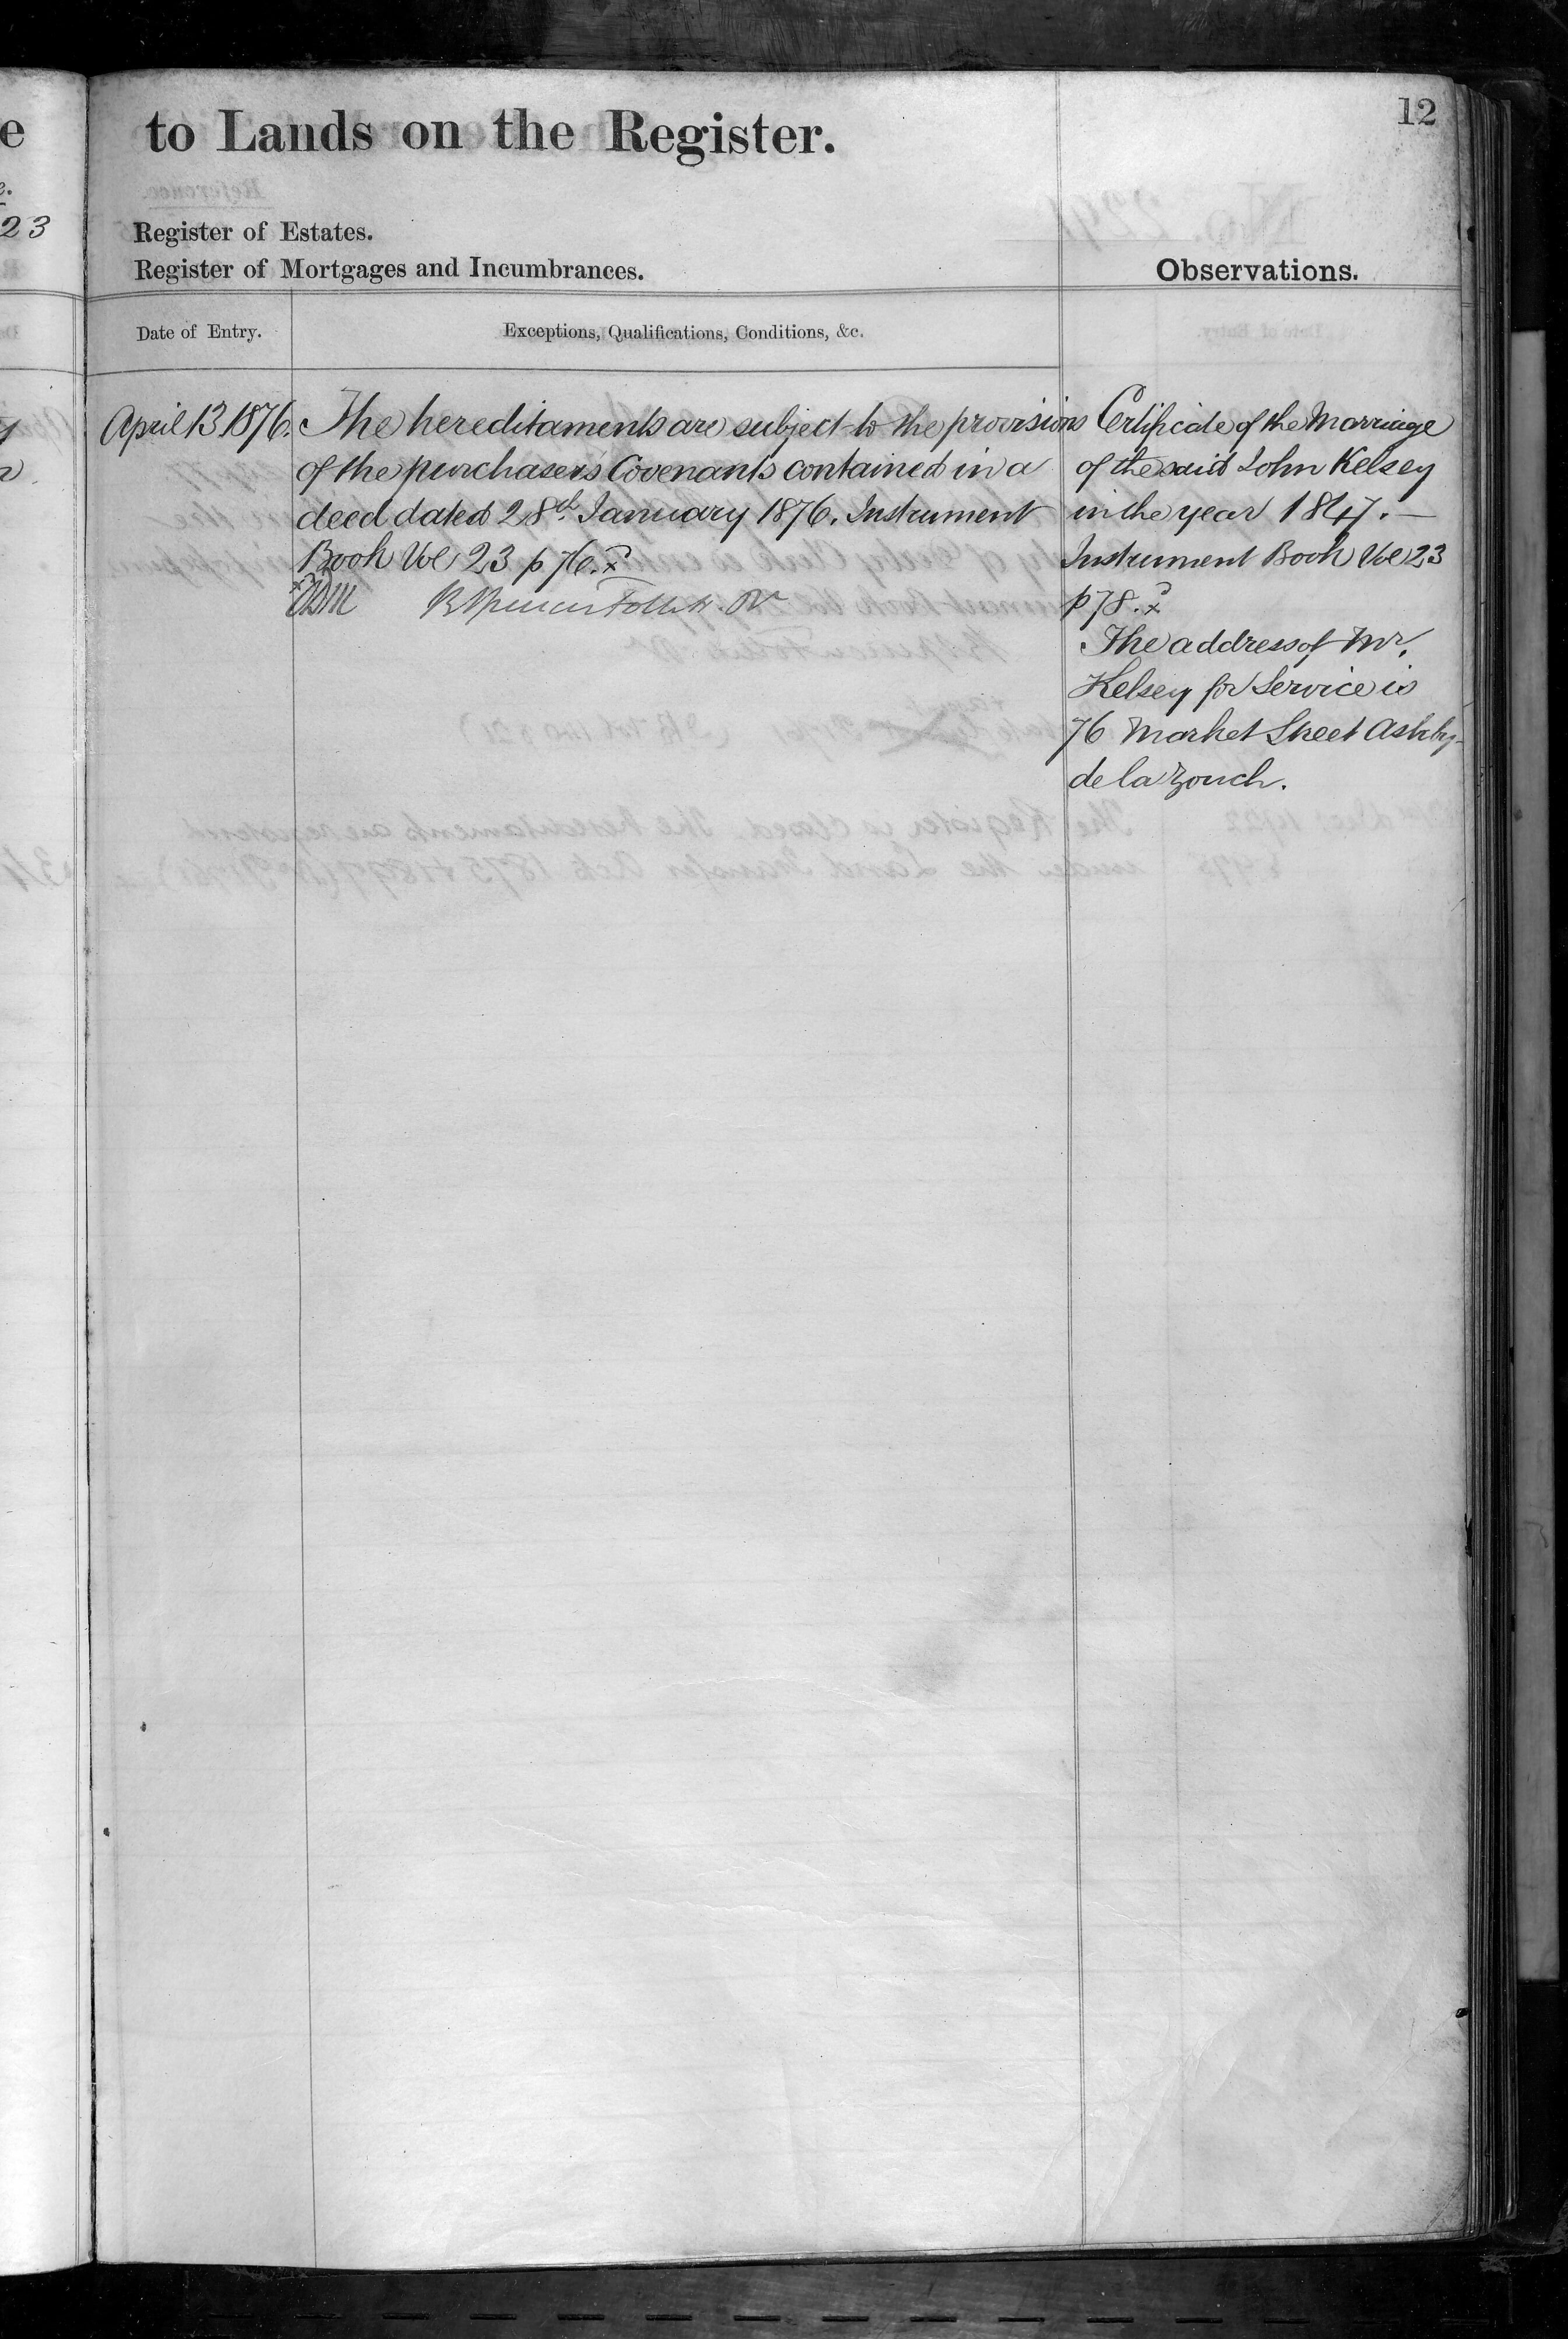 12
to Lands on the Register.
23
Register of Estates.
Register of Mortgages and Incumbrances.
Observations.
Date of Entry.
Exceptions, Qualifications, Conditions, &c.
April 13 1876.
The hereditaments are subject to the provisions
of the purchasers Covenants contained in a
deed dated 28th January 1876. Instrument
Book Vol 23 p 76.
R Spencer Follett
Certificate of the Marriage
of the said John Kelsey
in the year 1847. —
Instrument Book Vol 23
p 78.
The address of Mr.
Kelsey for Service is
76 Market Street Ashby-
de la Zouch.